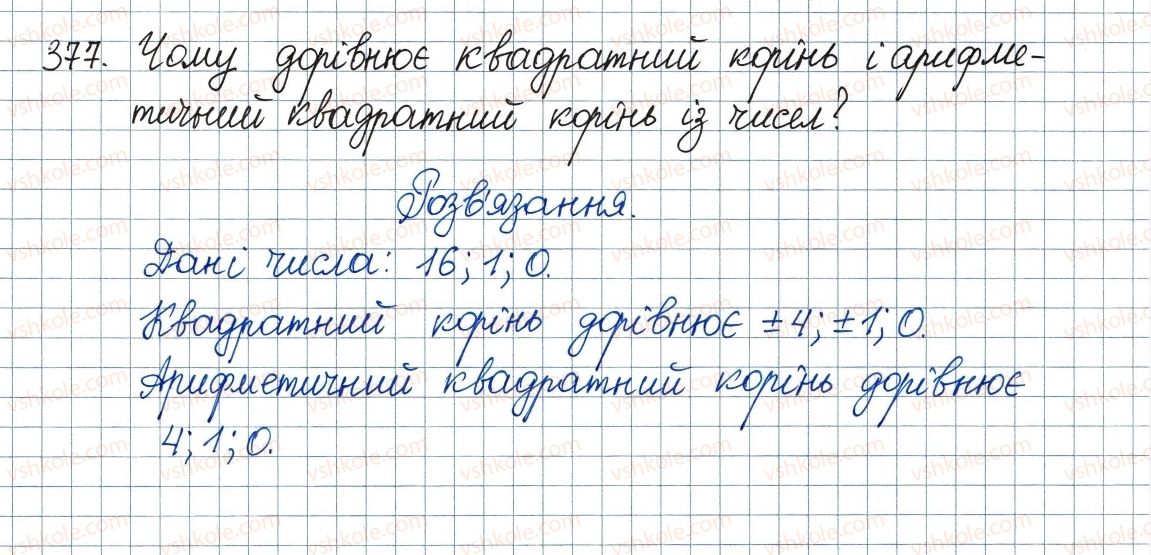 377. Чому дорівнює квадратний корінь і арифме-
тичний квадратний корінь із чисел?
Розв'язання.
Дані числа: 16; 1; 0.
Квадратний корінь дорівнює ±4; ±1; 0.
Арифметичний квадратний корінь дорівнює
4; 1; 0.